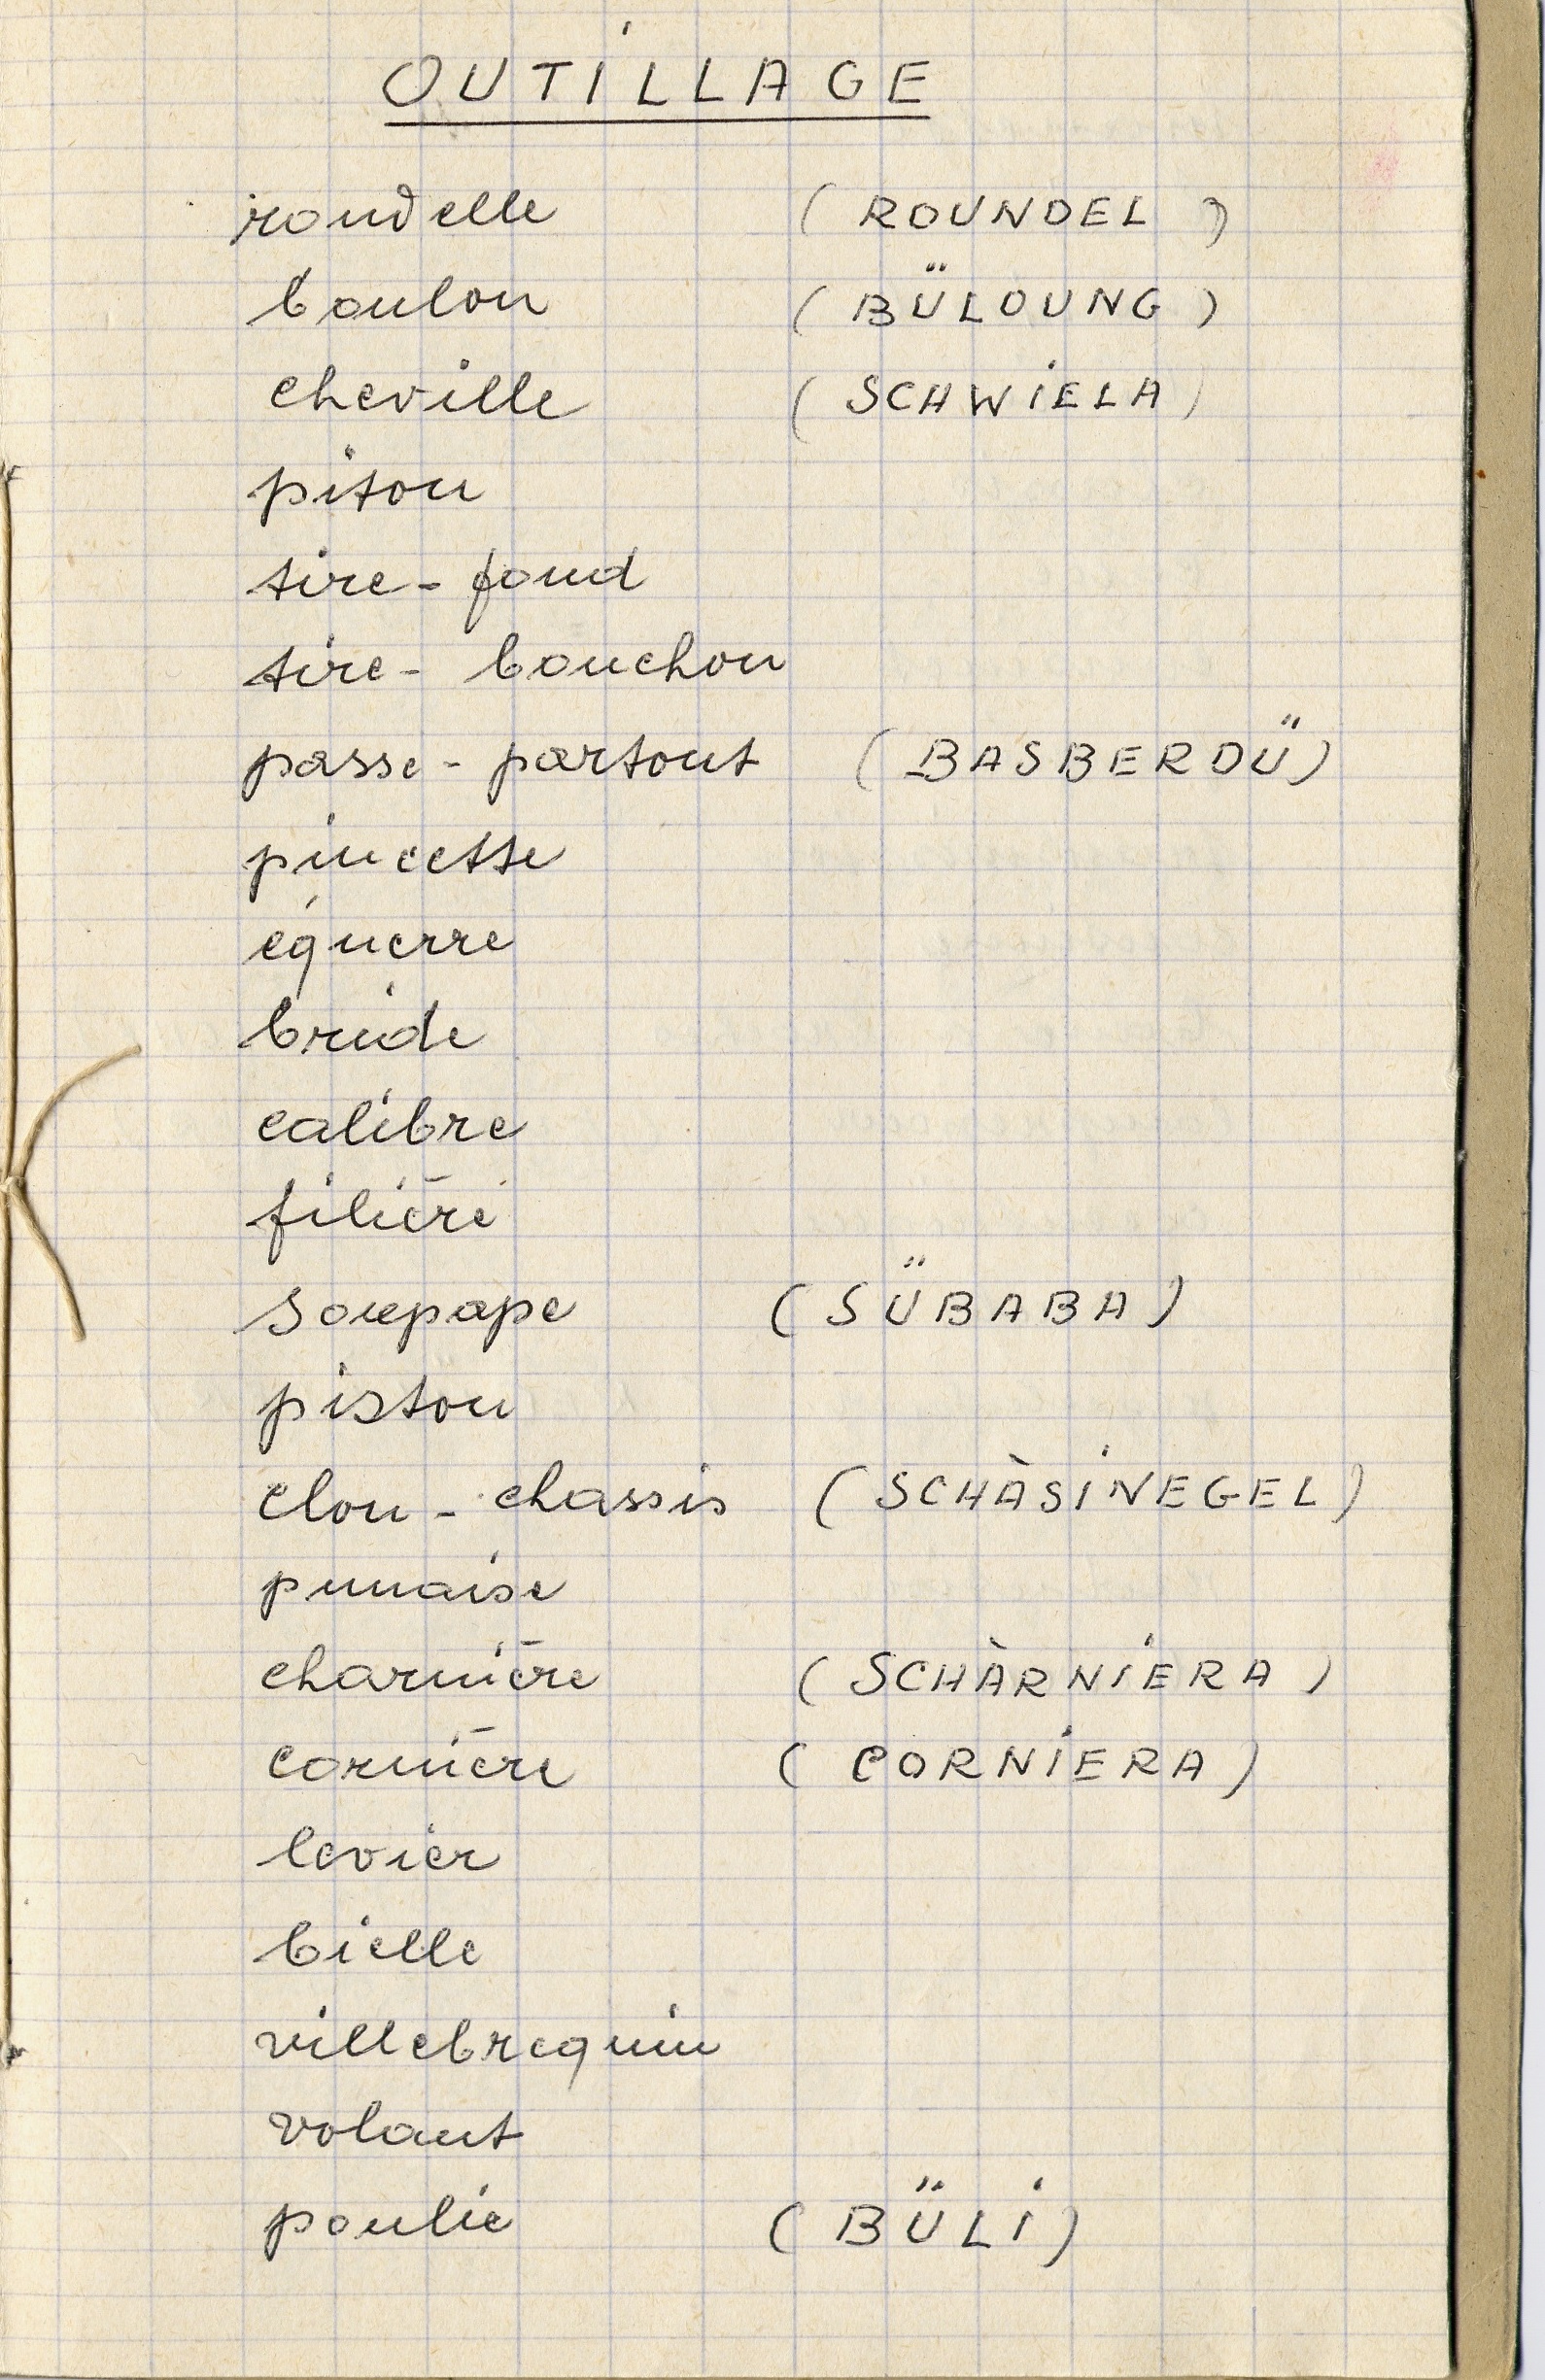 OUTILLAGE
rondelle (ROUNDEL)
boulon (BÜLOUNG)
cheville (SCHWIELA)
piton
tire-fond
tire-bouchon
passe-partout (BASBERDÜ)
pincette
équerre
bride
calibre
filière
soupape (SÜBABA)
piston
clou-chassis (SCHÀSINEGEL)
punaise
charnière (SCHÀRNIERA)
cornière (CORNIERA)
levier
bielle
villebrequin
volant
poulie (BÜLI)